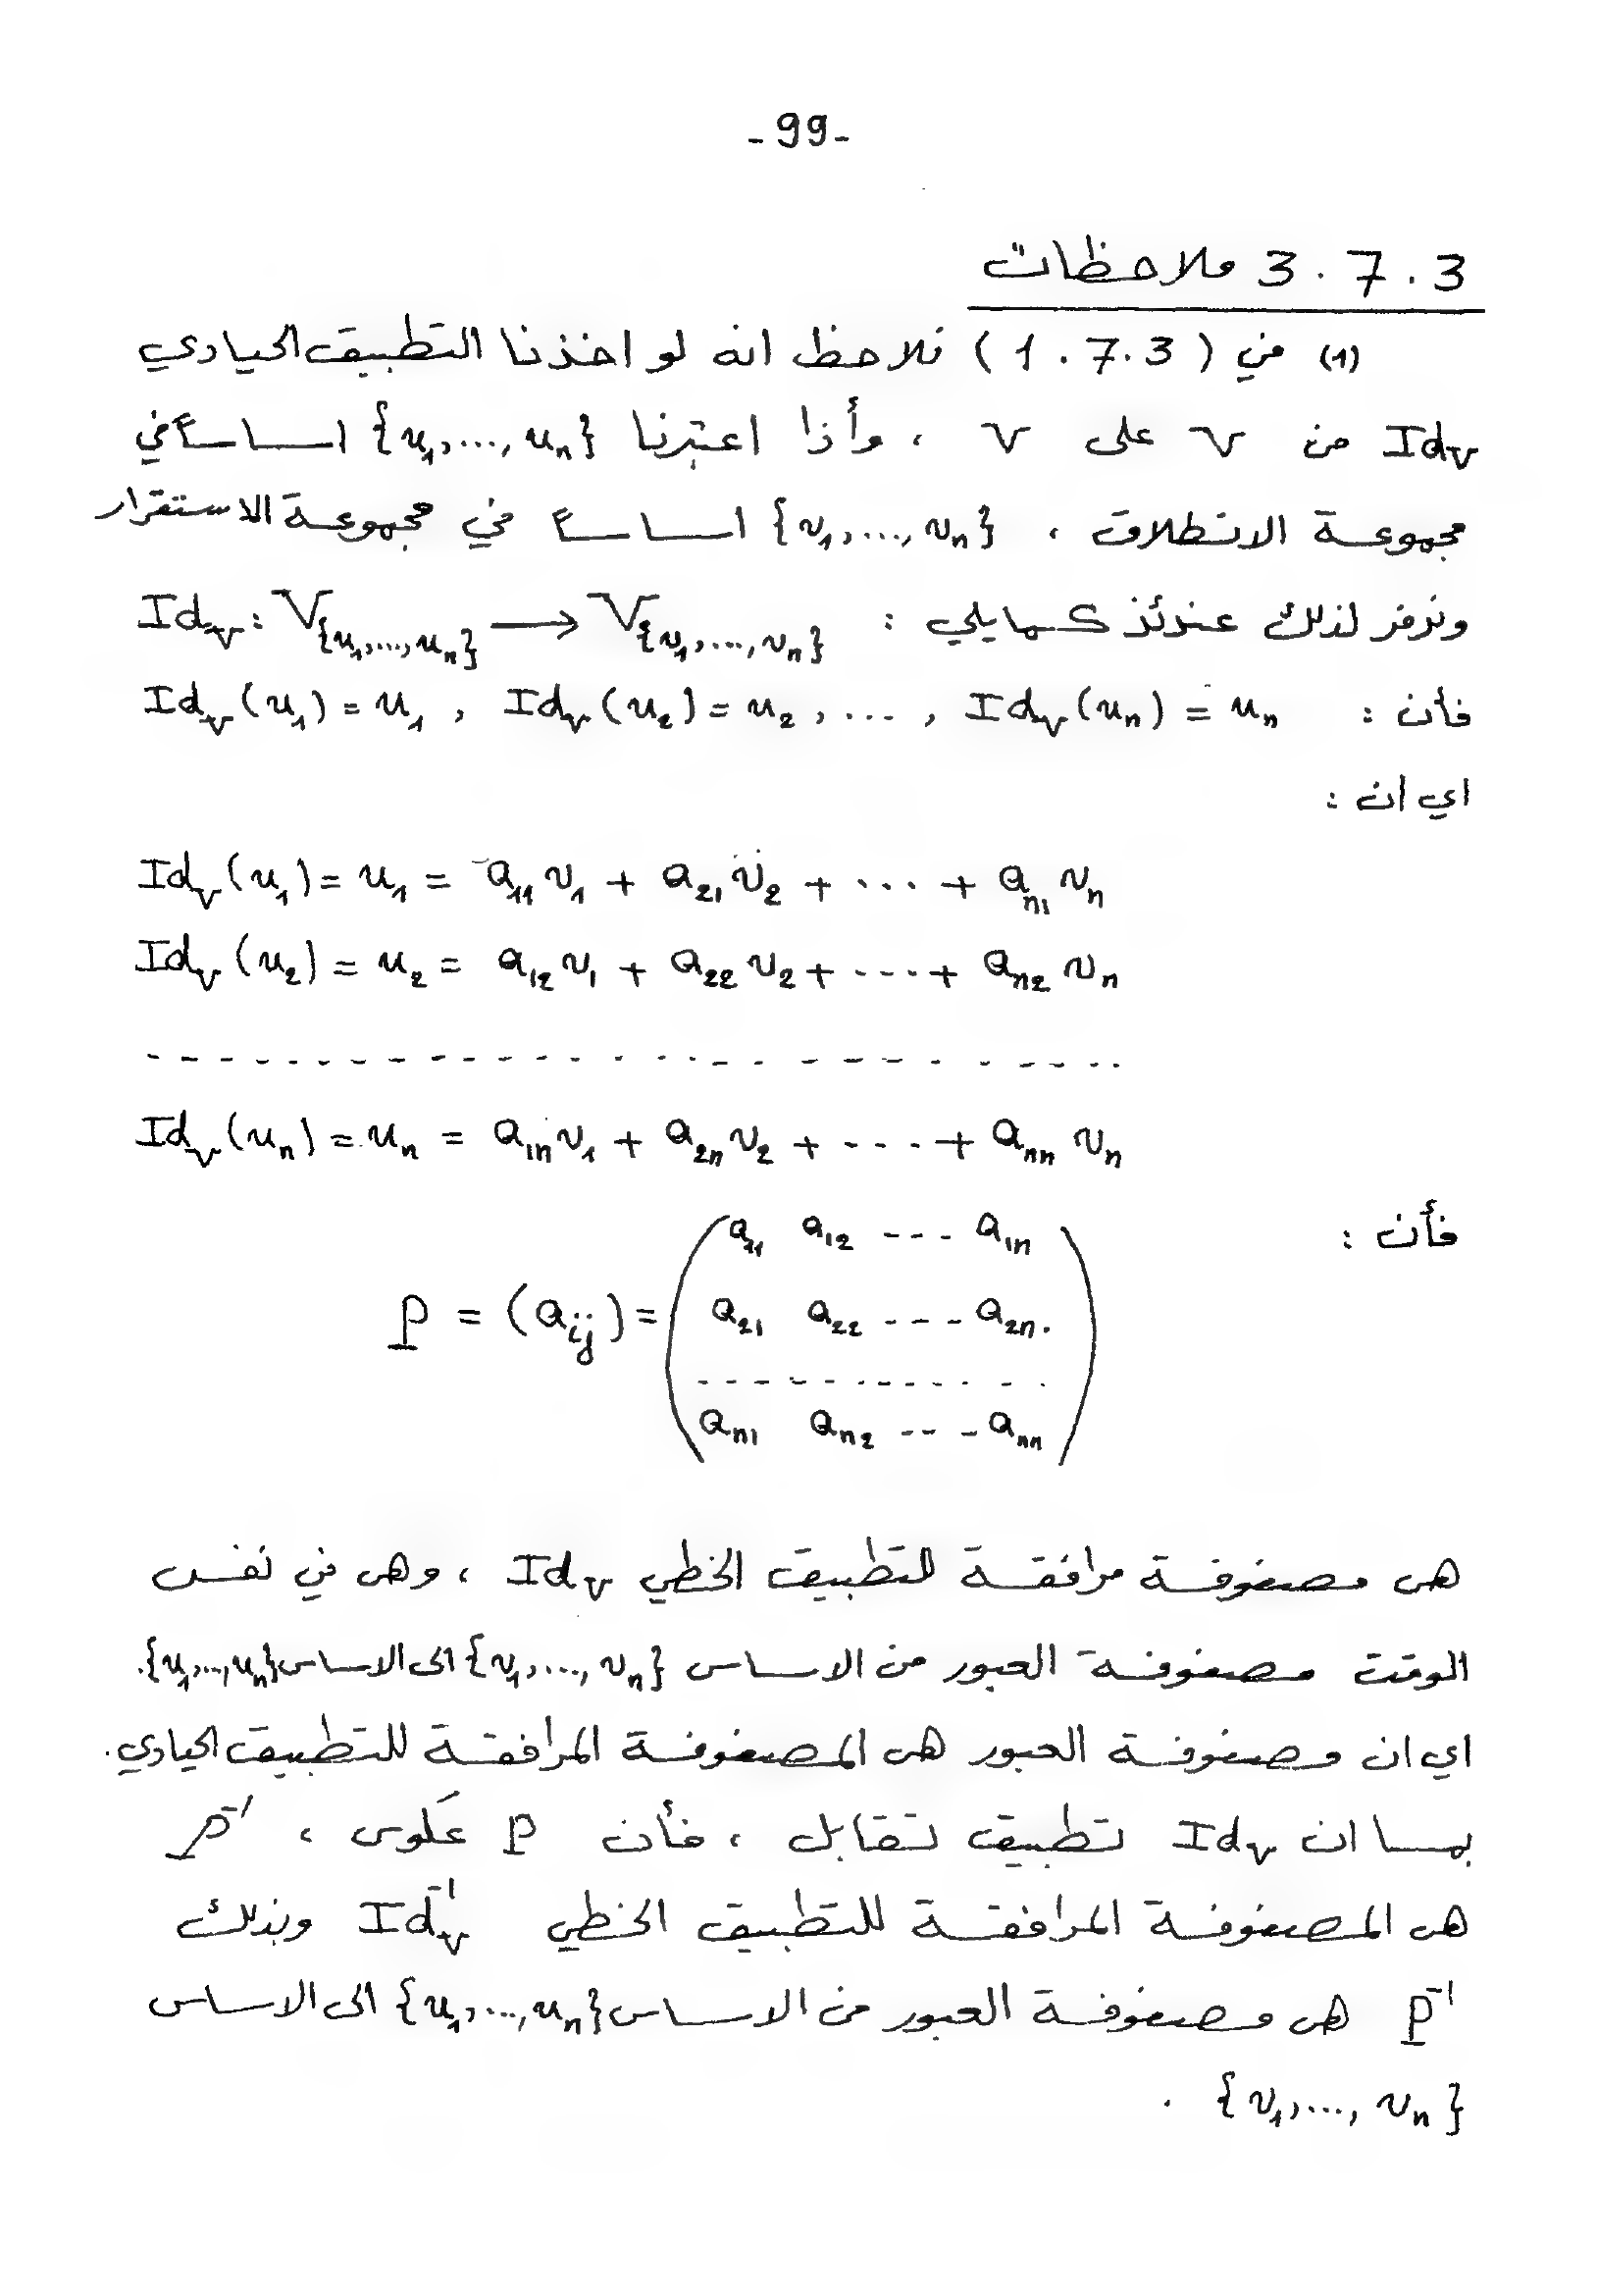 - 99 -
3.7.3 ملاحظات
(1) في (1.7.3) نلاحظ انه لو اخذنا التطبيق الحيادي
Id_V من V على V ، وأذا اعتبرنا {u₁,...,uₙ} اساساً في
مجموعة الانطلاق ، {v₁,...,vₙ} اساساً في مجموعة الاستقرار
ونرمز لذلك عندئذ كمايلي : Id_V : V_{u₁,...,uₙ} ⟶ V_{v₁,...,vₙ}
فأن : Id_V(u₁) = u₁ , Id_V(u₂) = u₂ , ... , Id_V(uₙ) = uₙ
اي ان :
Id_V(u₁) = u₁ = a₁₁ v₁ + a₂₁ v₂ + ... + aₙ₁ vₙ
Id_V(u₂) = u₂ = a₁₂ v₁ + a₂₂ v₂ + ... + aₙ₂ vₙ
- - - - - - - - - - - - - - - - - - - -
Id_V(uₙ) = uₙ = a₁ₙ v₁ + a₂ₙ v₂ + ... + aₙₙ vₙ
فأن :
a₁₁ a₁₂ --- a₁ₙ
P = (a_ij) = a₂₁ a₂₂ ---- a₂ₙ
- - - - - - - - - - -
aₙ₁ aₙ₂ --- aₙₙ
هى مصفوفة مرافقة للتطبيق الخطي Id_V ، وهى في نفس
الوقت مصفوفة العبور من الاساس {v₁,...,vₙ} الى الاساس {u₁,...,uₙ}.
اي ان مصفوفة العبور هى المصفوفة المرافقة للتطبيق الحيادي.
بما ان Id_V تطبيق تقابل ، فأن P عَلوى ، P⁻¹
هى المصفوفة المرافقة للتطبيق الخطي Id_V⁻¹ وبذلك
P⁻¹ هى مصفوفة العبور من الاساس {u₁,...,uₙ} الى الاساس
{v₁,...,vₙ} .